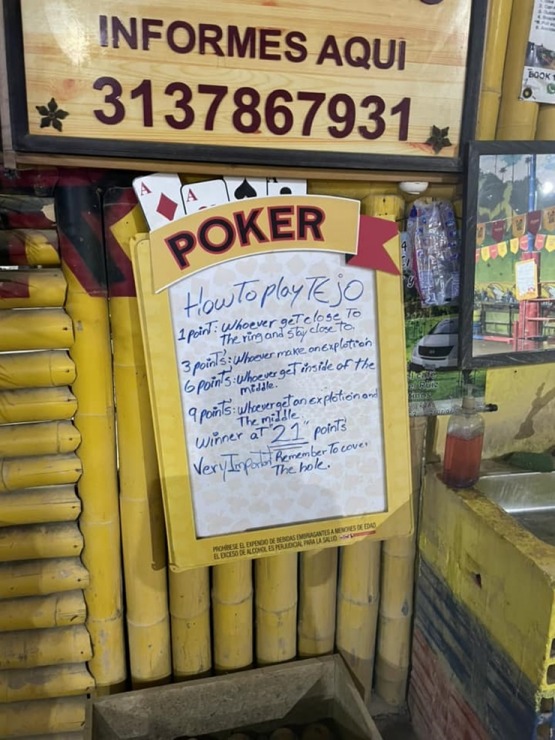 INFORMES AQUI
3137867931
BOOK
A
A
POKER
How To play TEjO
1 point: Whoever get close To
The ring and stay close to.
3 points: Whoever make an explotion
6 points: Whoever get inside of the
middle.
9 points: Whoever get an explotion and
The middle
Winner at "21" points
Very Important Remember To cover
The hole.
PROHÍBESE EL EXPENDIO DE BEBIDAS EMBRIAGANTES A MENORES DE EDAD.
EL EXCESO DE ALCOHOL ES PERJUDICIAL PARA LA SALUD.